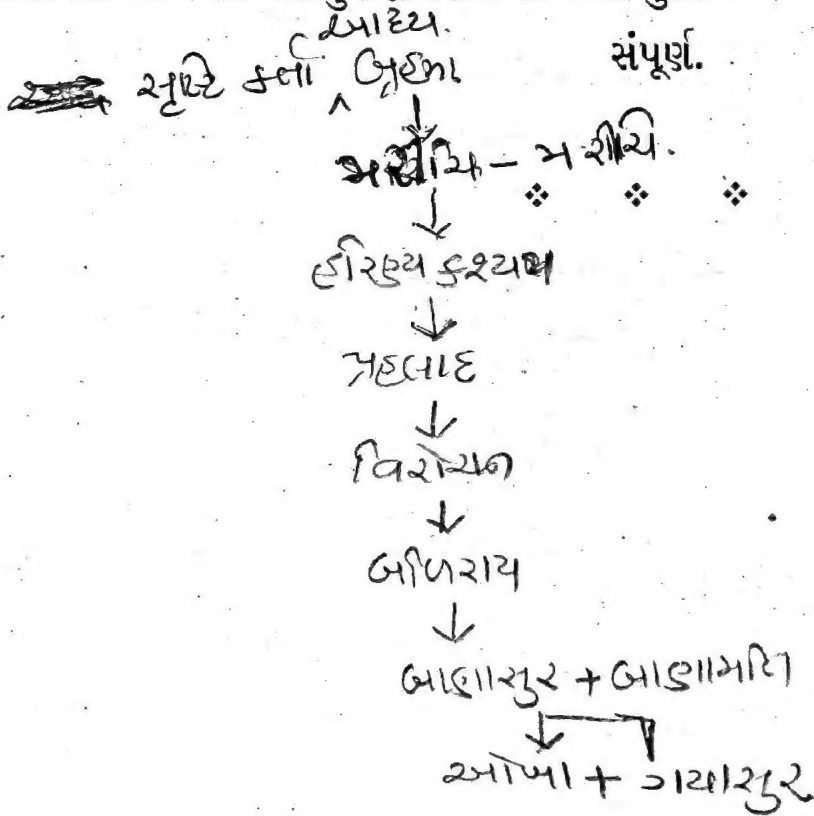 આદ્ય.
સૃષ્ટિ કર્તા ^ બ્રહ્મા
સંપૂર્ણ.
↓
મરીચિ - મરીચિ.
❖ ❖ ❖
↓
હરિણ્ય કશ્યપ
↓
પ્રહલાદ
↓
વિરોચન
↓
બળિરાય
↓
બાણાસુર + બાણામતિ
↓
ઓખા + ગયાસુર